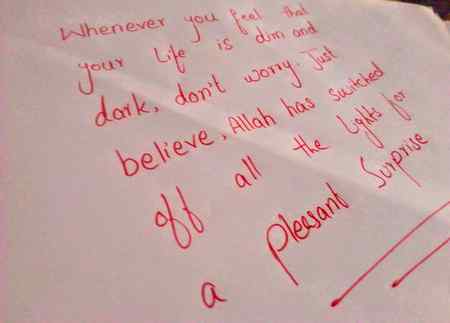 Whenever you feel that
your life is dim and
dark, don't worry. Just
believe, Allah has switched
off all the lights for
a pleasant surprise